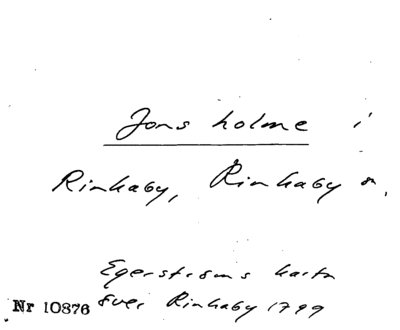 Jons holme i
Rinkaby, Rinkaby sn.
Egerströms karta
Nr 10876 över Rinkaby 1799